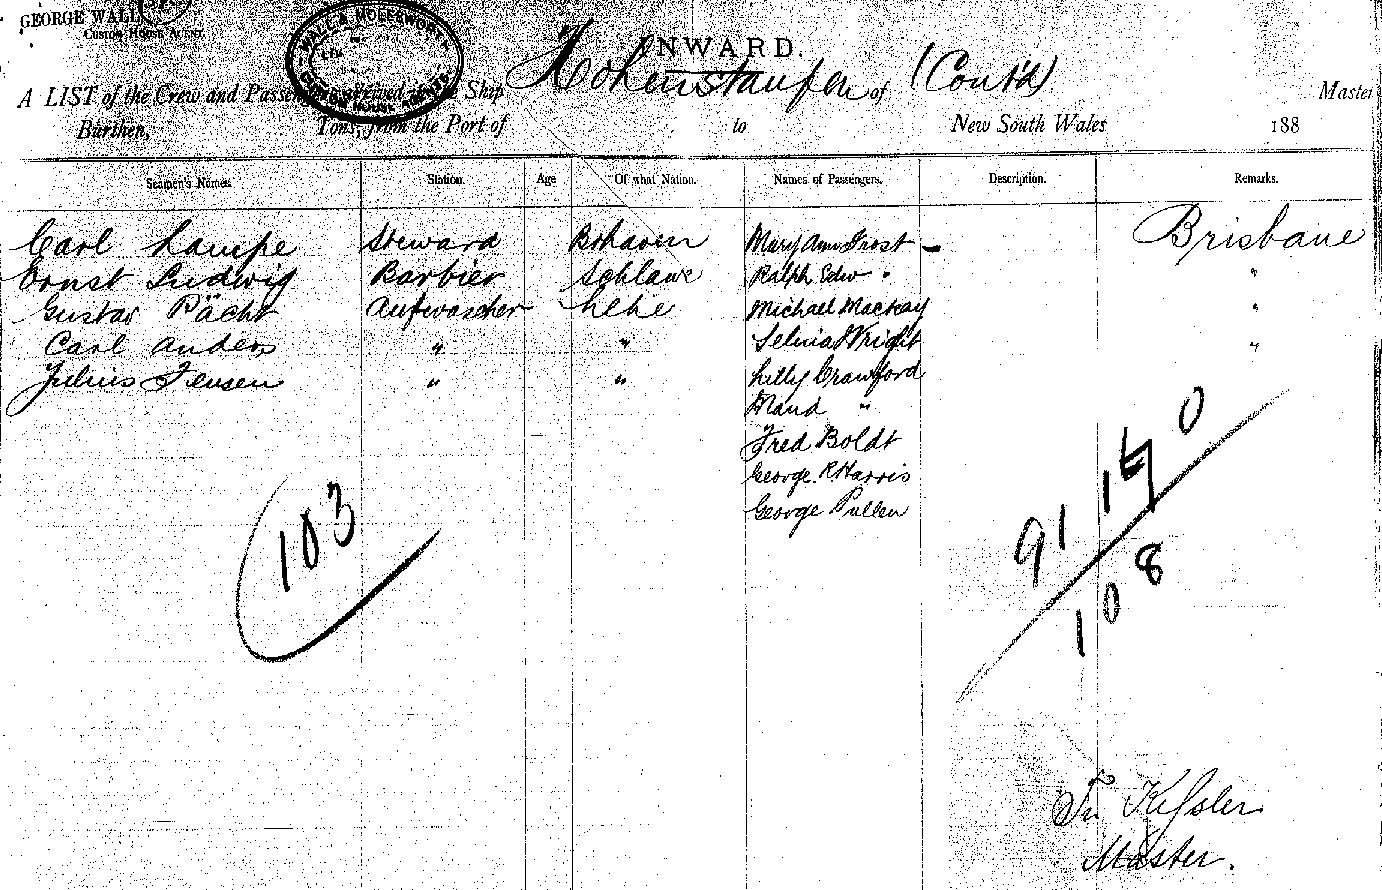 GEORGE WALL
Custom House Agent.
WALL & MOLESWORTH
CUSTOM HOUSE AGENTS
INWARD.
A LIST of the Crew and Passengers arrived in the Ship Hohenstaufen of (Cont'd) Master
Burthen, Tons, from the Port of to New South Wales 188
Seamen's Names. Station. Age Of what Nation. Names of Passengers. Description. Remarks.
Carl Lampe Steward Bhaven Mary Ann Frost - Brisbane
Ernst Ludwig Barbier Schlawe Ralph Edw " "
Gustav Pächt Aufwascher Lehe Michael Mackay "
Carl Anders " " Selina Wright "
Julius Jensen " " Lilly Crawford
Maud "
Fred Boldt
George R Harris
George Pullen
103
0
91
108
Kessler
Master.